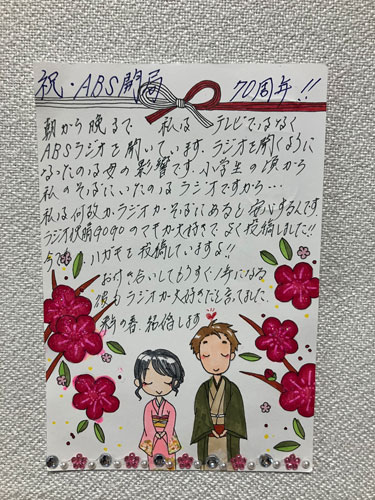 祝・ABS開局 70周年!!
朝から晩まで 私は テレビではなく
ABSラジオを聞いています。ラジオを聞くように
なったのは母の影響です。小学生の頃から
私のそばにいたのはラジオですから…
私は何故かラジオがそばにあると安心するんです。
ラジオ快晴9090のマオが大好きで よく投稿しました!!
今でも ハガキを投稿していますよ!!
お付き合いしてもうすぐ1年になる
彼も ラジオが大好きだと言ってました。
来年の春、結婚します